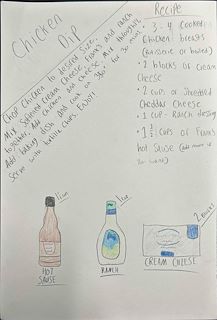 Chicken
Dip
Chop Chicken to desired size.
Mix softened cream cheese, Franks and ranch
together. Add chicken and cheese. Mix thoroughly.
Add baking dish and cook on 350° for 30 min.
Serve with tortilla chips. Enjoy!
Recipe
• 3-4 Cooked
Chicken breasts
(rotisserie or boiled)
• 2 blocks of Cream
Cheese
• 2 cups of Shredded
Cheddar Cheese
• 1 cup - Ranch dressing
• 1 1/2 cups of Franks
hot sauce (add more if
you want)
1 1/2 cup
HOT
SAUCE
1 cup
RANCH
2 blocks
CREAM CHEESE